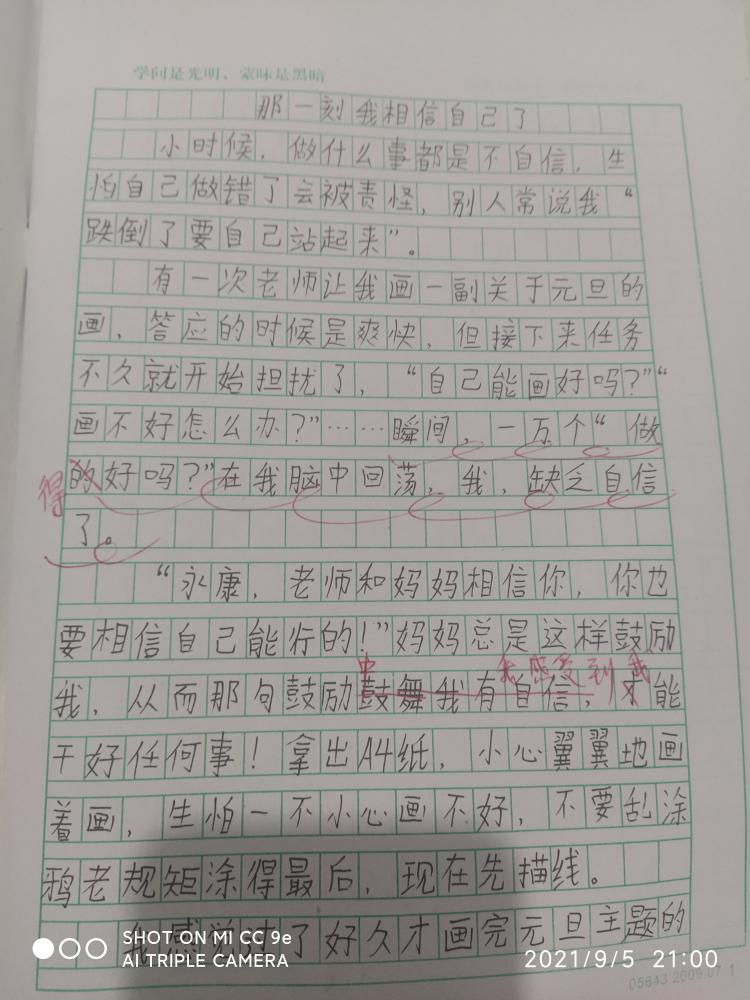 学问是光明、蒙昧是黑暗
那一刻我相信自己了
小时候，做什么事都是不自信，生
怕自己做错了会被责怪，别人常说我“
跌倒了要自己站起来”。
有一次老师让我画一副关于元旦的
画，答应的时候是爽快，但接下来任务
不久就开始担扰了，“自己能画好吗？”“
画不好怎么办？”……瞬间，一万个“做
得
的好吗？”在我脑中回荡，我，缺乏自信
了。
“永康，老师和妈妈相信你，你也
要相信自己能行的！”妈妈总是这样鼓励
中 我感受到 我
我，从而那句鼓励鼓舞我有自信，才能
干好任何事！拿出A4纸，小心翼翼地画
着画，生怕一不小心画不好，不要乱涂
鸦老规矩涂得最后，现在先描线。
感觉过了好久才画完元旦主题的
SHOT ON MI CC 9e
AI TRIPLE CAMERA
2021/9/5 21:00
05643 2009.07 1